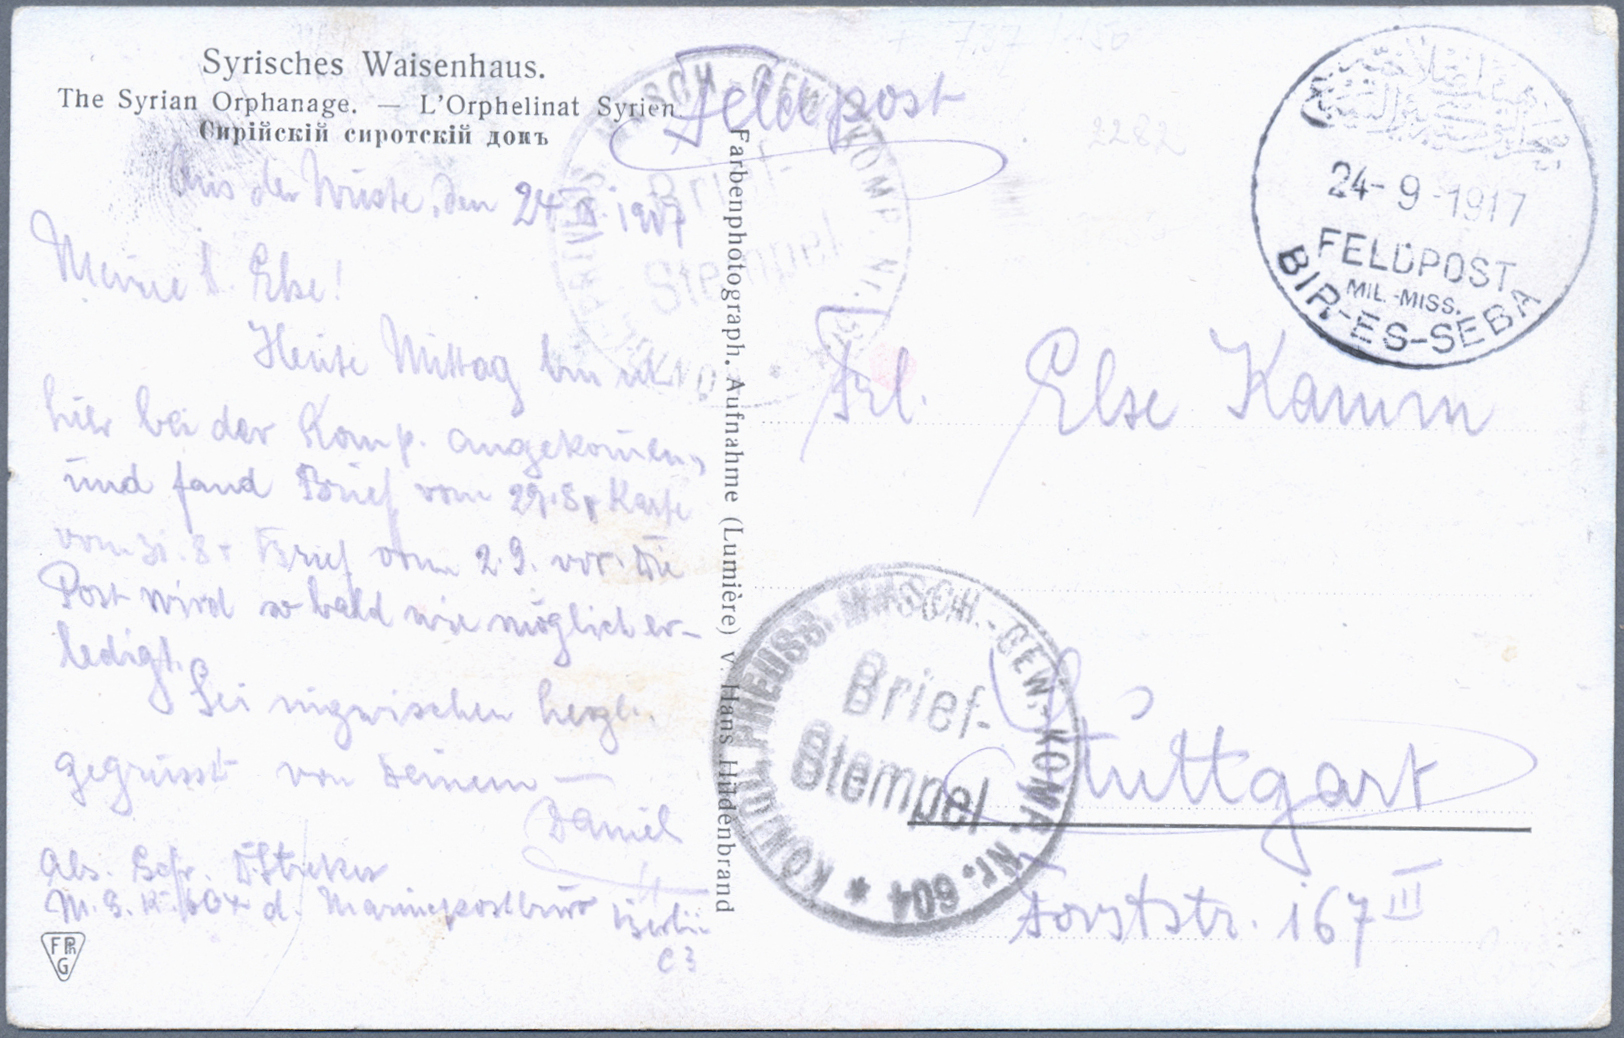 Syrisches Waisenhaus.
The Syrian Orphanage. — L'Orphelinat Syrien.
Сирійскій сиротскій домъ
Feldpost
Aus der Wüste, den 24. IX. 1917
Meine l. Else!
Heute Mittag bin ich
hier bei der Komp. angekommen,
und fand Brief vom 29.8, Karte
vom 31.8 + Brief vom 2.9. vor. Die
Post wird so bald wie möglich er-
ledigt.
Sei inzwischen herzl.
gegrüsst von Deinem —
Daniel
Abs. Gefr. D.
M.G.K. 604 d. Marinepostbüro Berlin
C 3
FPhG
Farbenphotograph. Aufnahme (Lumière) v. Hans Hildenbrand
24-9-1917
FELDPOST
MIL.-MISS.
BIR-ES-SEBA
2282
Frl. Else Kamm
Stuttgart
Forststr. 167 III
KÖNIGL. PREUSS. MASCH.-GEW.-KOMP. Nr. 604 *
Brief-
Stempel
Brief-
Stempel